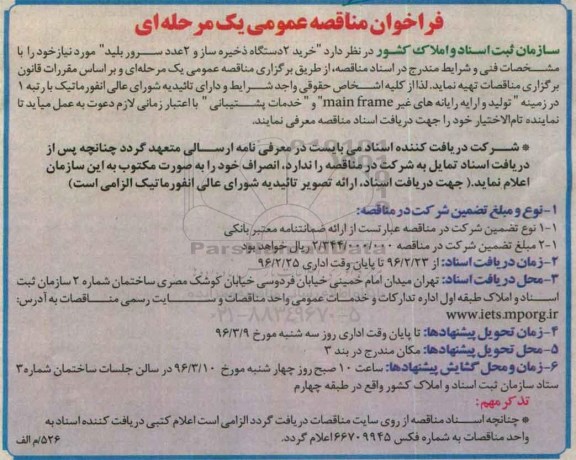 فراخوان مناقصه عمومی یک مرحله‌ای
سازمان ثبت اسناد و املاک کشور در نظر دارد "خرید ۲دستگاه ذخیره ساز و ۲عدد سرور بلید" مورد نیاز خود را با
مشخصات فنی و شرایط مندرج در اسناد مناقصه، از طریق برگزاری مناقصه عمومی یک مرحله‌ای و بر اساس مقررات قانون
برگزاری مناقصات تهیه نماید. لذا از کلیه اشخاص حقوقی واجد شرایط و دارای تائیدیه شورای عالی انفورماتیک با رتبه ۱
در زمینه "تولید و ارایه رایانه های غیر main frame" و "خدمات پشتیبانی" با اعتبار زمانی لازم دعوت به عمل میآید تا
نماینده تام‌الاختیار خود را جهت دریافت اسناد مناقصه معرفی نمایند.
* شرکت دریافت کننده اسناد می بایست در معرفی نامه ارسالی متعهد گردد چنانچه پس از
دریافت اسناد تمایل به شرکت در مناقصه را ندارد، انصراف خود را به صورت مکتوب به این سازمان
اعلام نماید.( جهت دریافت اسناد، ارائه تصویر تائیدیه شورای عالی انفورماتیک الزامی است)
۱-نوع و مبلغ تضمین شرکت در مناقصه:
۱-۱ نوع تضمین شرکت در مناقصه عبارتست از ارائه ضمانتنامه معتبر بانکی
۱-۲ مبلغ تضمین شرکت در مناقصه ۲/۳۴۴/۰۰۰/۰۰۰ ریال خواهد بود
۲-زمان دریافت اسناد: از ۹۶/۲/۲۳ تا پایان وقت اداری ۹۶/۲/۲۵
۳-محل دریافت اسناد: تهران میدان امام خمینی خیابان فردوسی خیابان کوشک مصری ساختمان شماره ۲ سازمان ثبت
اسناد و املاک طبقه اول اداره تدارکات و خدمات عمومی واحد مناقصات و سایت رسمی مناقصات به آدرس:
www.iets.mporg.ir
۴-زمان تحویل پیشنهادها: تا پایان وقت اداری روز سه شنبه مورخ ۹۶/۳/۹
۵-محل تحویل پیشنهادها: مکان مندرج در بند ۳
۶-زمان و محل گشایش پیشنهادها: ساعت ۱۰ صبح روز چهار شنبه مورخ ۹۶/۳/۱۰ در سالن جلسات ساختمان شماره۳
ستاد سازمان ثبت اسناد و املاک کشور واقع در طبقه چهارم
تذکر مهم:
* چنانچه اسناد مناقصه از روی سایت مناقصات دریافت گردد الزامی است اعلام کتبی دریافت کننده اسناد به
واحد مناقصات به شماره فکس ۶۶۷۰۹۹۴۵اعلام گردد.
۵۲۶/م الف
۰۲۱-۸۸۳۴۹۶۷۰-۵